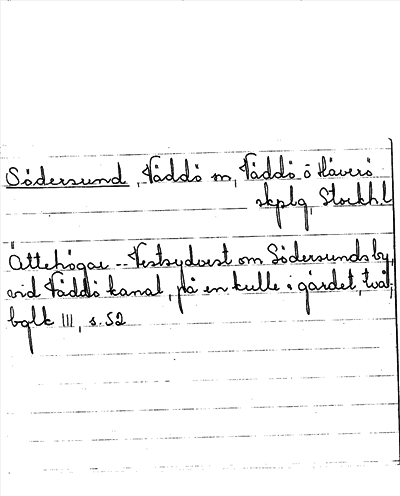 Södersund, Väddö sn, Väddö ö Häverö
skplg, Stockh.l
Ättehögar -- Vestsydvest om Södersunds by,
vid Väddö kanal, på en kulle i gärdet, två;
bglk III, s. 52